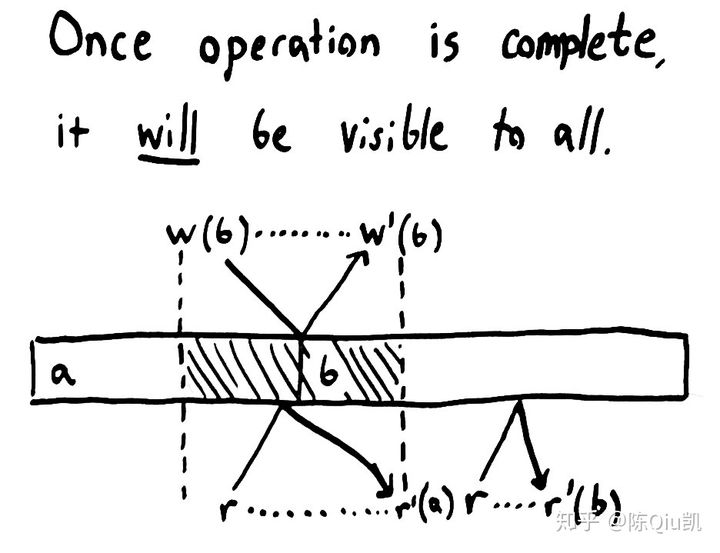 Once operation is complete,
it will be visible to all.
w(b)·········w'(b)
a
b
r··············r'(a) r·····r'(b)
知乎 @陈Qiu凯